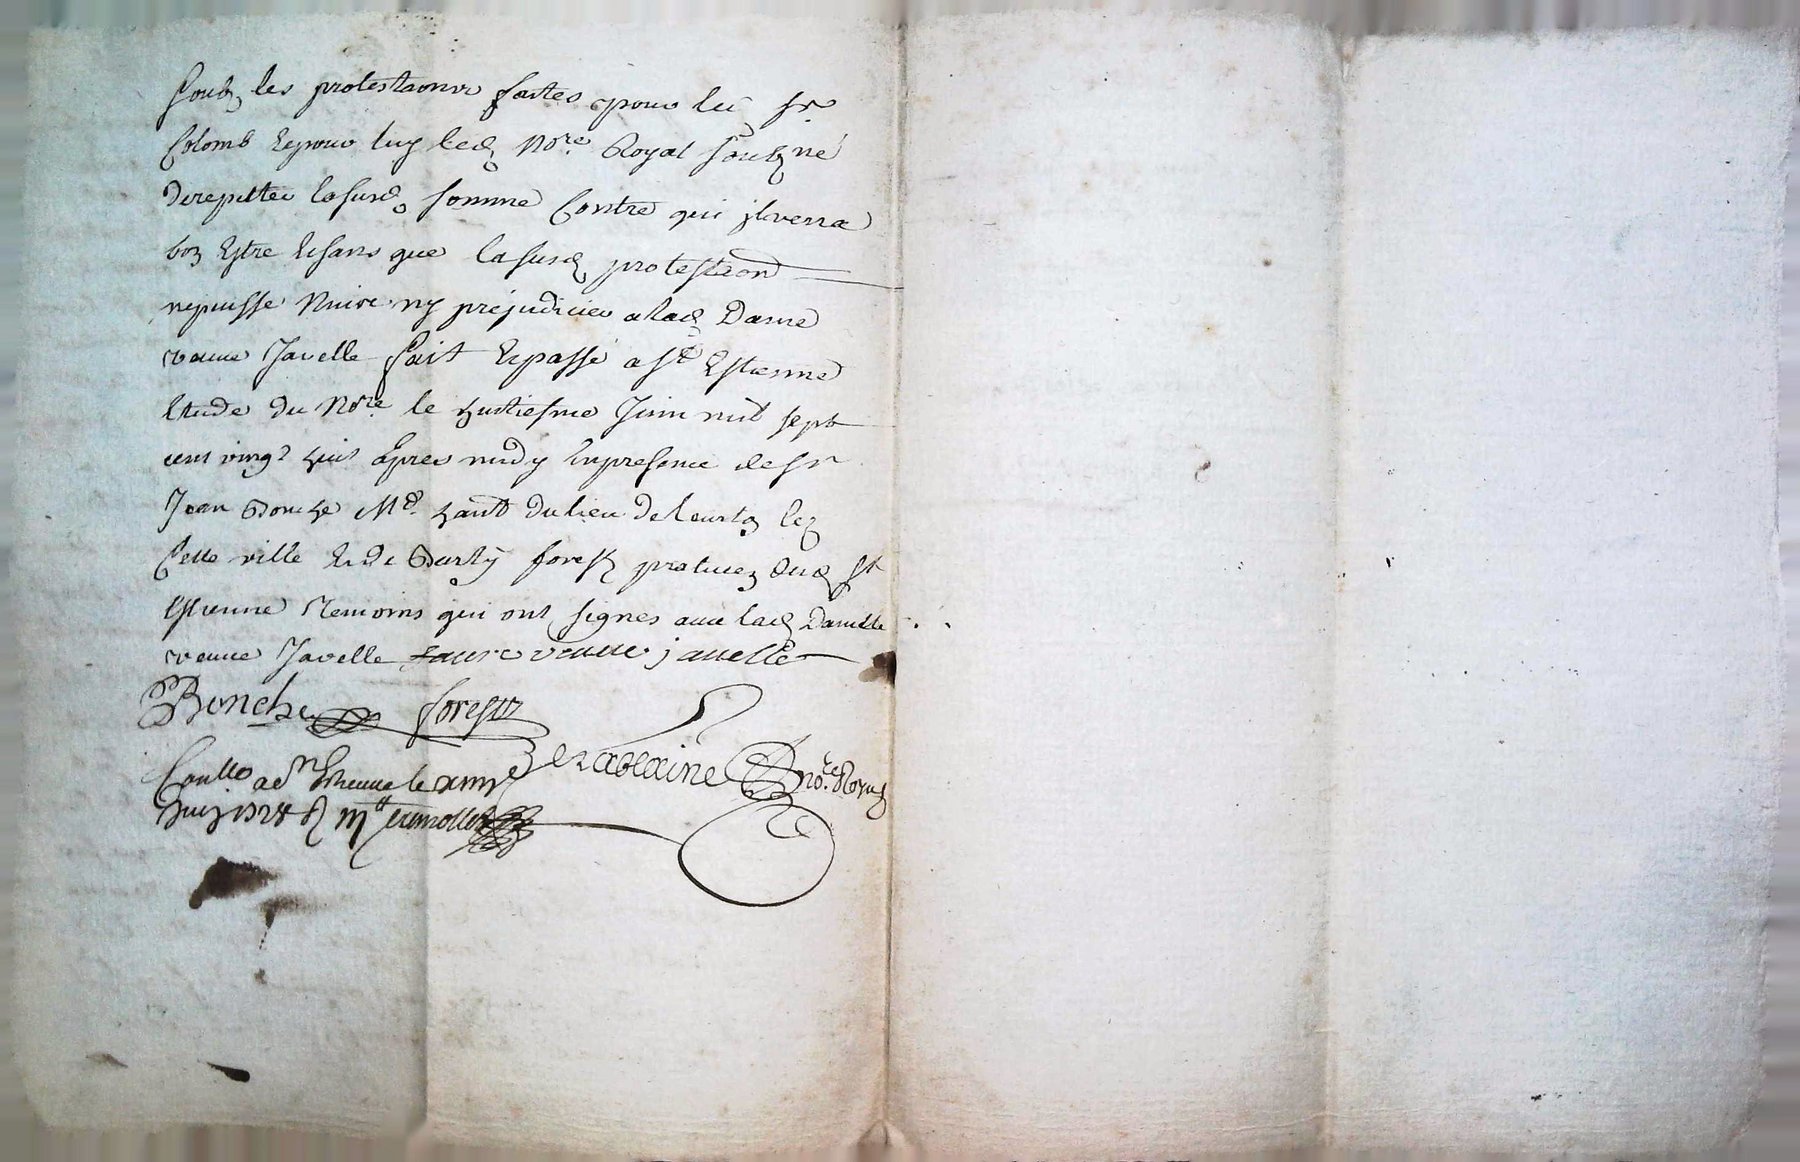 Soubz les protestaons faites pour led Sr
Colomb et pour luy led Nore Royal Soubzné
de repetter la susd. somme Contre qui il verra
bon Estre Et sans que la susd protestaon
ne puisse Nuire ny préjudicier a lad Dame
veuue Javelle fait Et passé a St Estienne
Etude du Nore le huitiesme Juin mil sept
cent vingt huit apres midy En presence de Sr
Jean Bonche Md habt du lieu de
Cette ville Et de forest praticien dud St
Estienne Temoins qui ont signes auec lad Damelle
veuue Javelle faure veuue javelle
Bonche forest
Conllé a St Estienne le
Juin 1728 Nore Royal